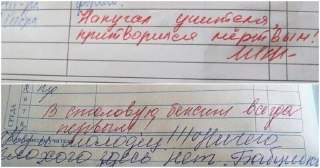 Напугал учителя,
притворился мёртвым!
СРЕДА
В столовую бежит всегда
первым
молодец!!! Ничего
плохого здесь нет. Бабушка